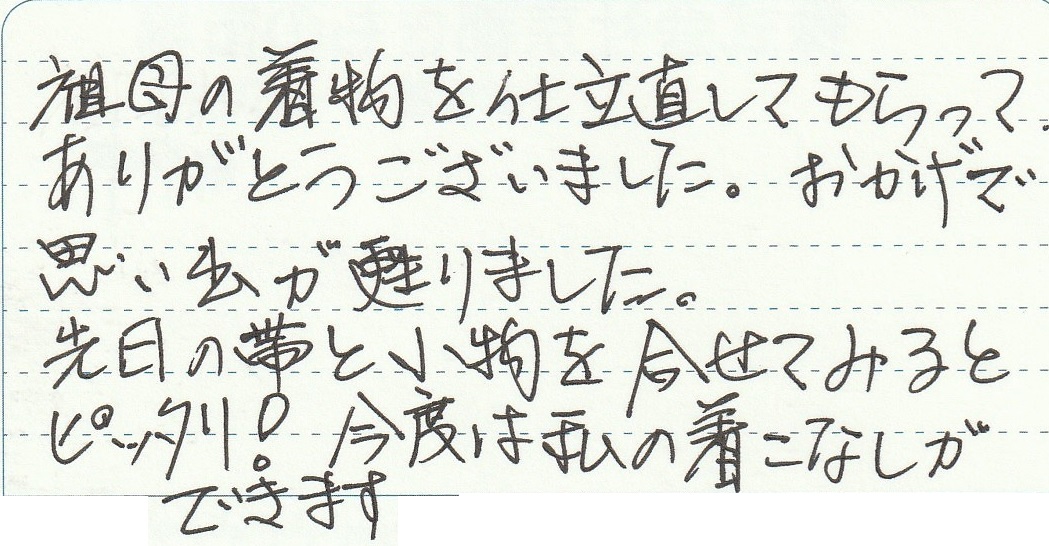 祖母の着物を仕立直してもらって
ありがとうございました。おかげで
思い出が甦りました。
先日の帯と小物を合せてみると
ピッタリ！今度は私の着こなしが
できます